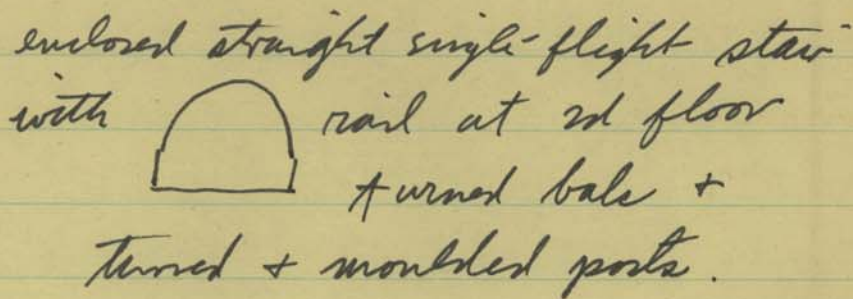 enclosed straight single-flight stair
with rail at 2d floor
turned bals +
turned + moulded posts.